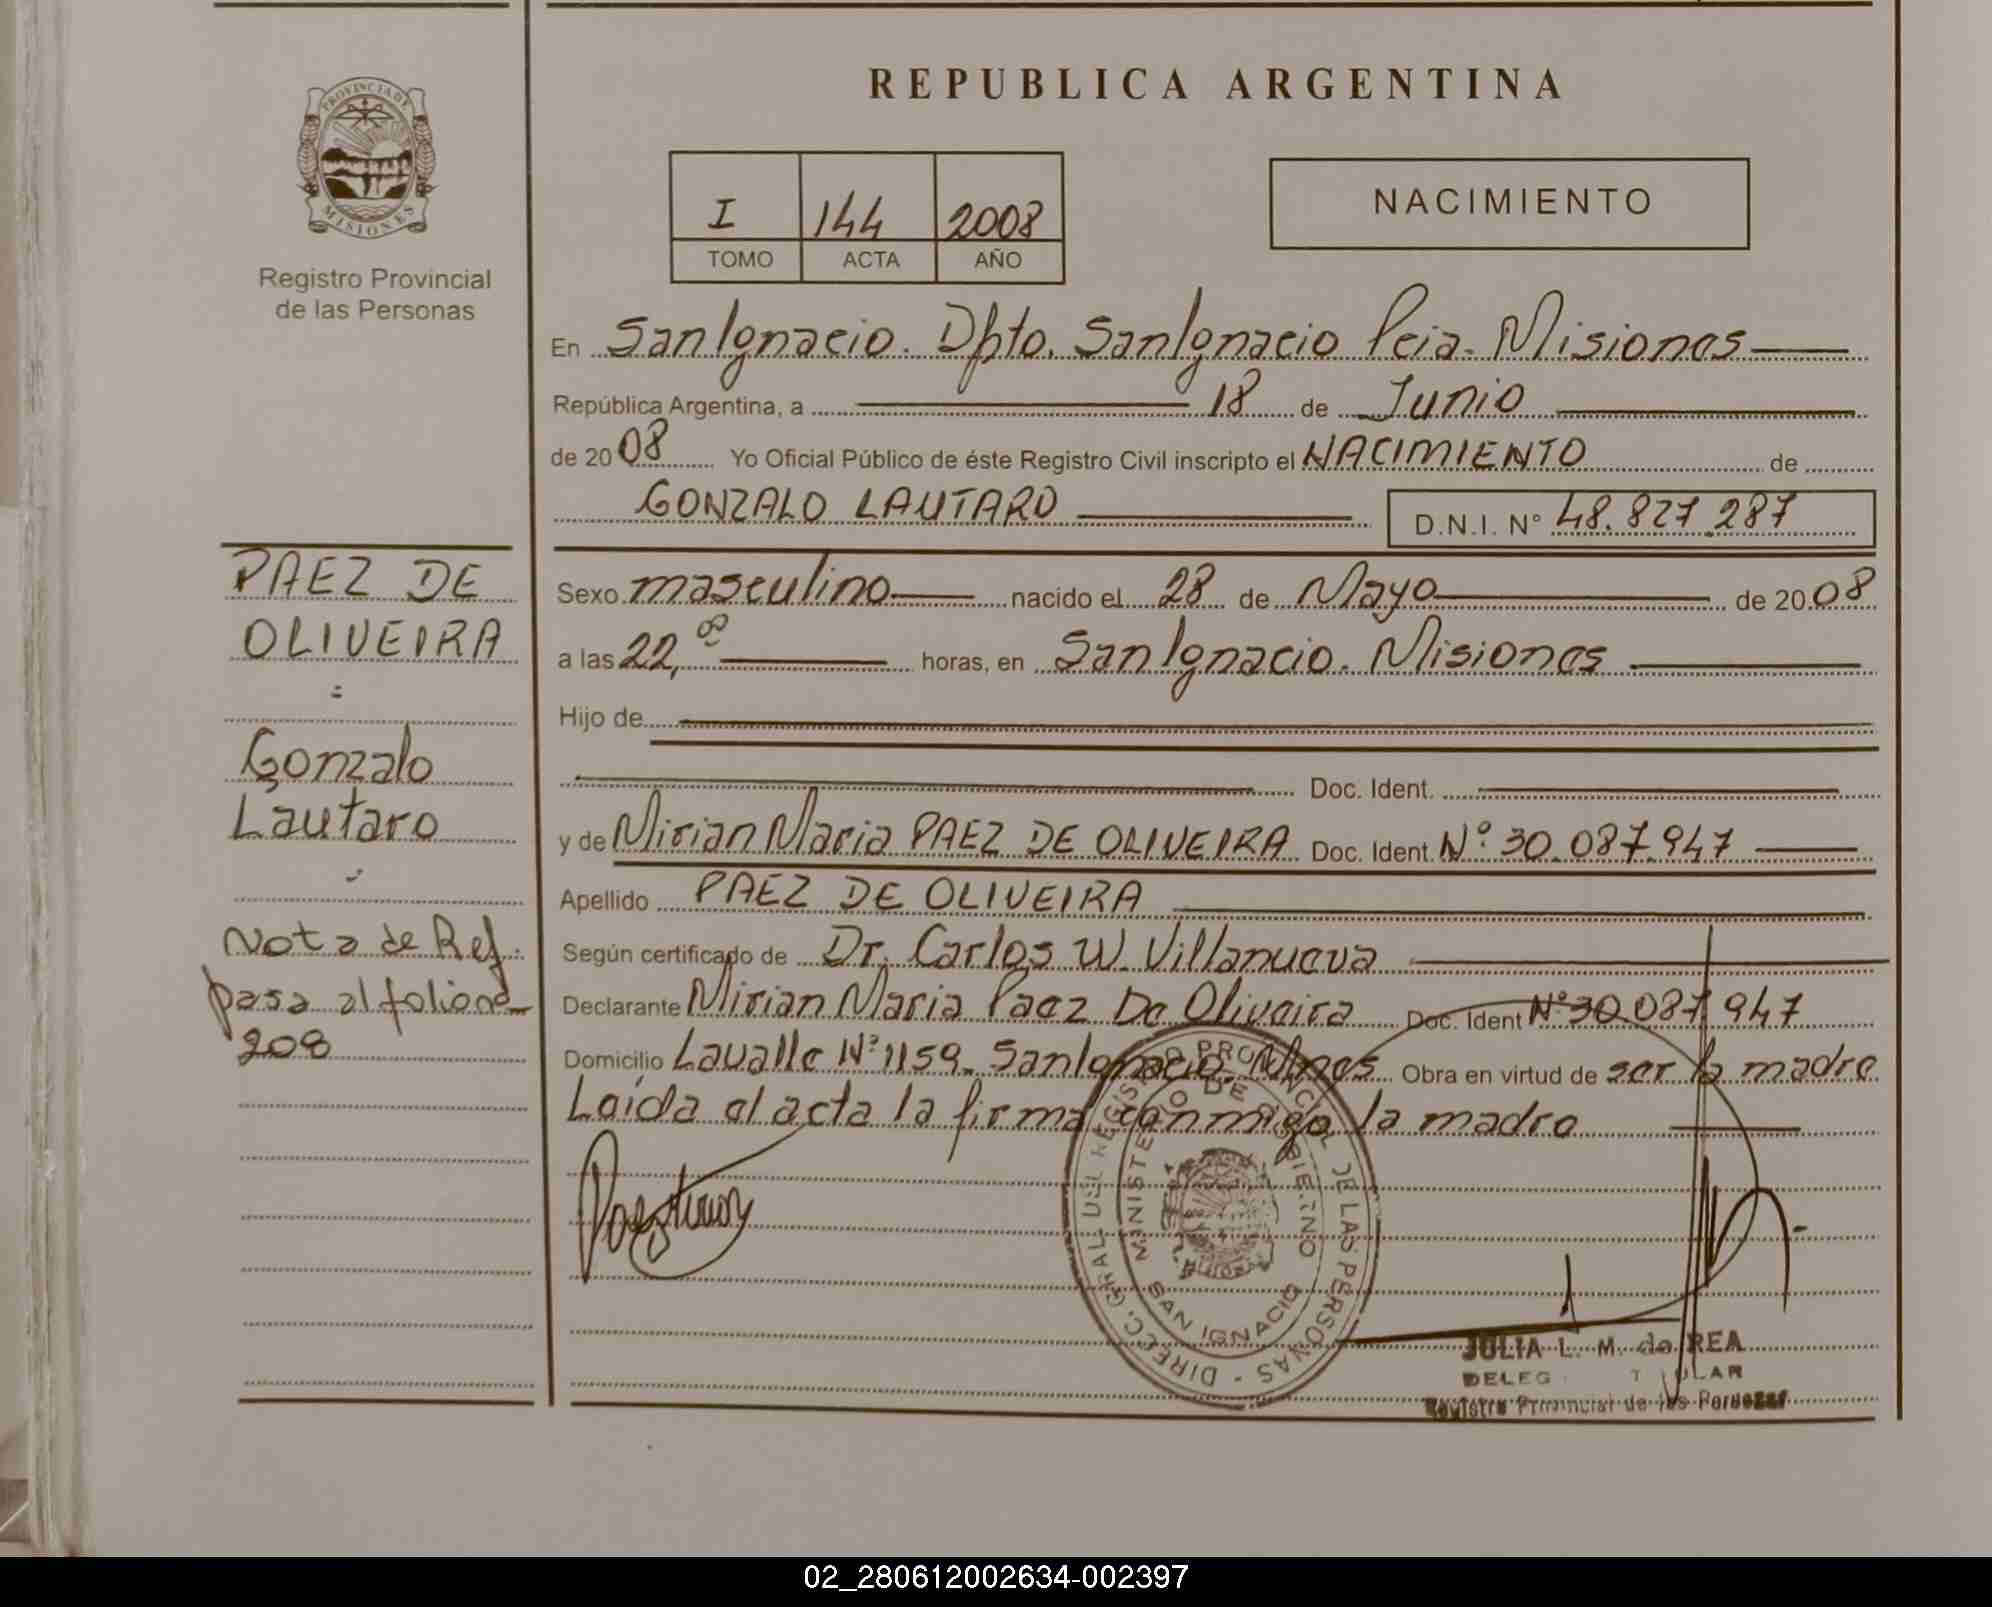 REPUBLICA ARGENTINA
PROVINCIA DE
MISIONES
Registro Provincial
de las Personas
I 144 2008
TOMO ACTA AÑO
NACIMIENTO
En San Ignacio. Dpto. San Ignacio Pcia. Misiones
República Argentina, a 18 de Junio
de 2008 Yo Oficial Público de éste Registro Civil inscripto el NACIMIENTO de
GONZALO LAUTARO D.N.I. N° 48.827.287
PAEZ DE
OLIVEIRA
Gonzalo
Lautaro
Nota de Ref.
pasa al folio nº
208
Sexo masculino nacido el 28 de Mayo de 2008
a las 22,00 horas, en San Ignacio. Misiones
Hijo de
Doc. Ident.
y de Mirian Maria PAEZ DE OLIVEIRA Doc. Ident. Nº 30.087.947
Apellido PAEZ DE OLIVEIRA
Según certificado de Dr. Carlos W. Villanueva
Declarante Mirian Maria Paez De Oliveira Doc. Ident Nº 30.087.947
Domicilio Lavalle Nº 1159. San Ignacio. Mnes Obra en virtud de ser la madre
Leída el acta la firma conmigo la madre
DIRECC. GRAL. DEL REGISTRO PROVINCIAL DE LAS PERSONAS -
MINISTERIO DE GOBIERNO
SAN IGNACIO
JULIA L. M. de REA
Registro Provincial de las Personas
02_280612002634-002397